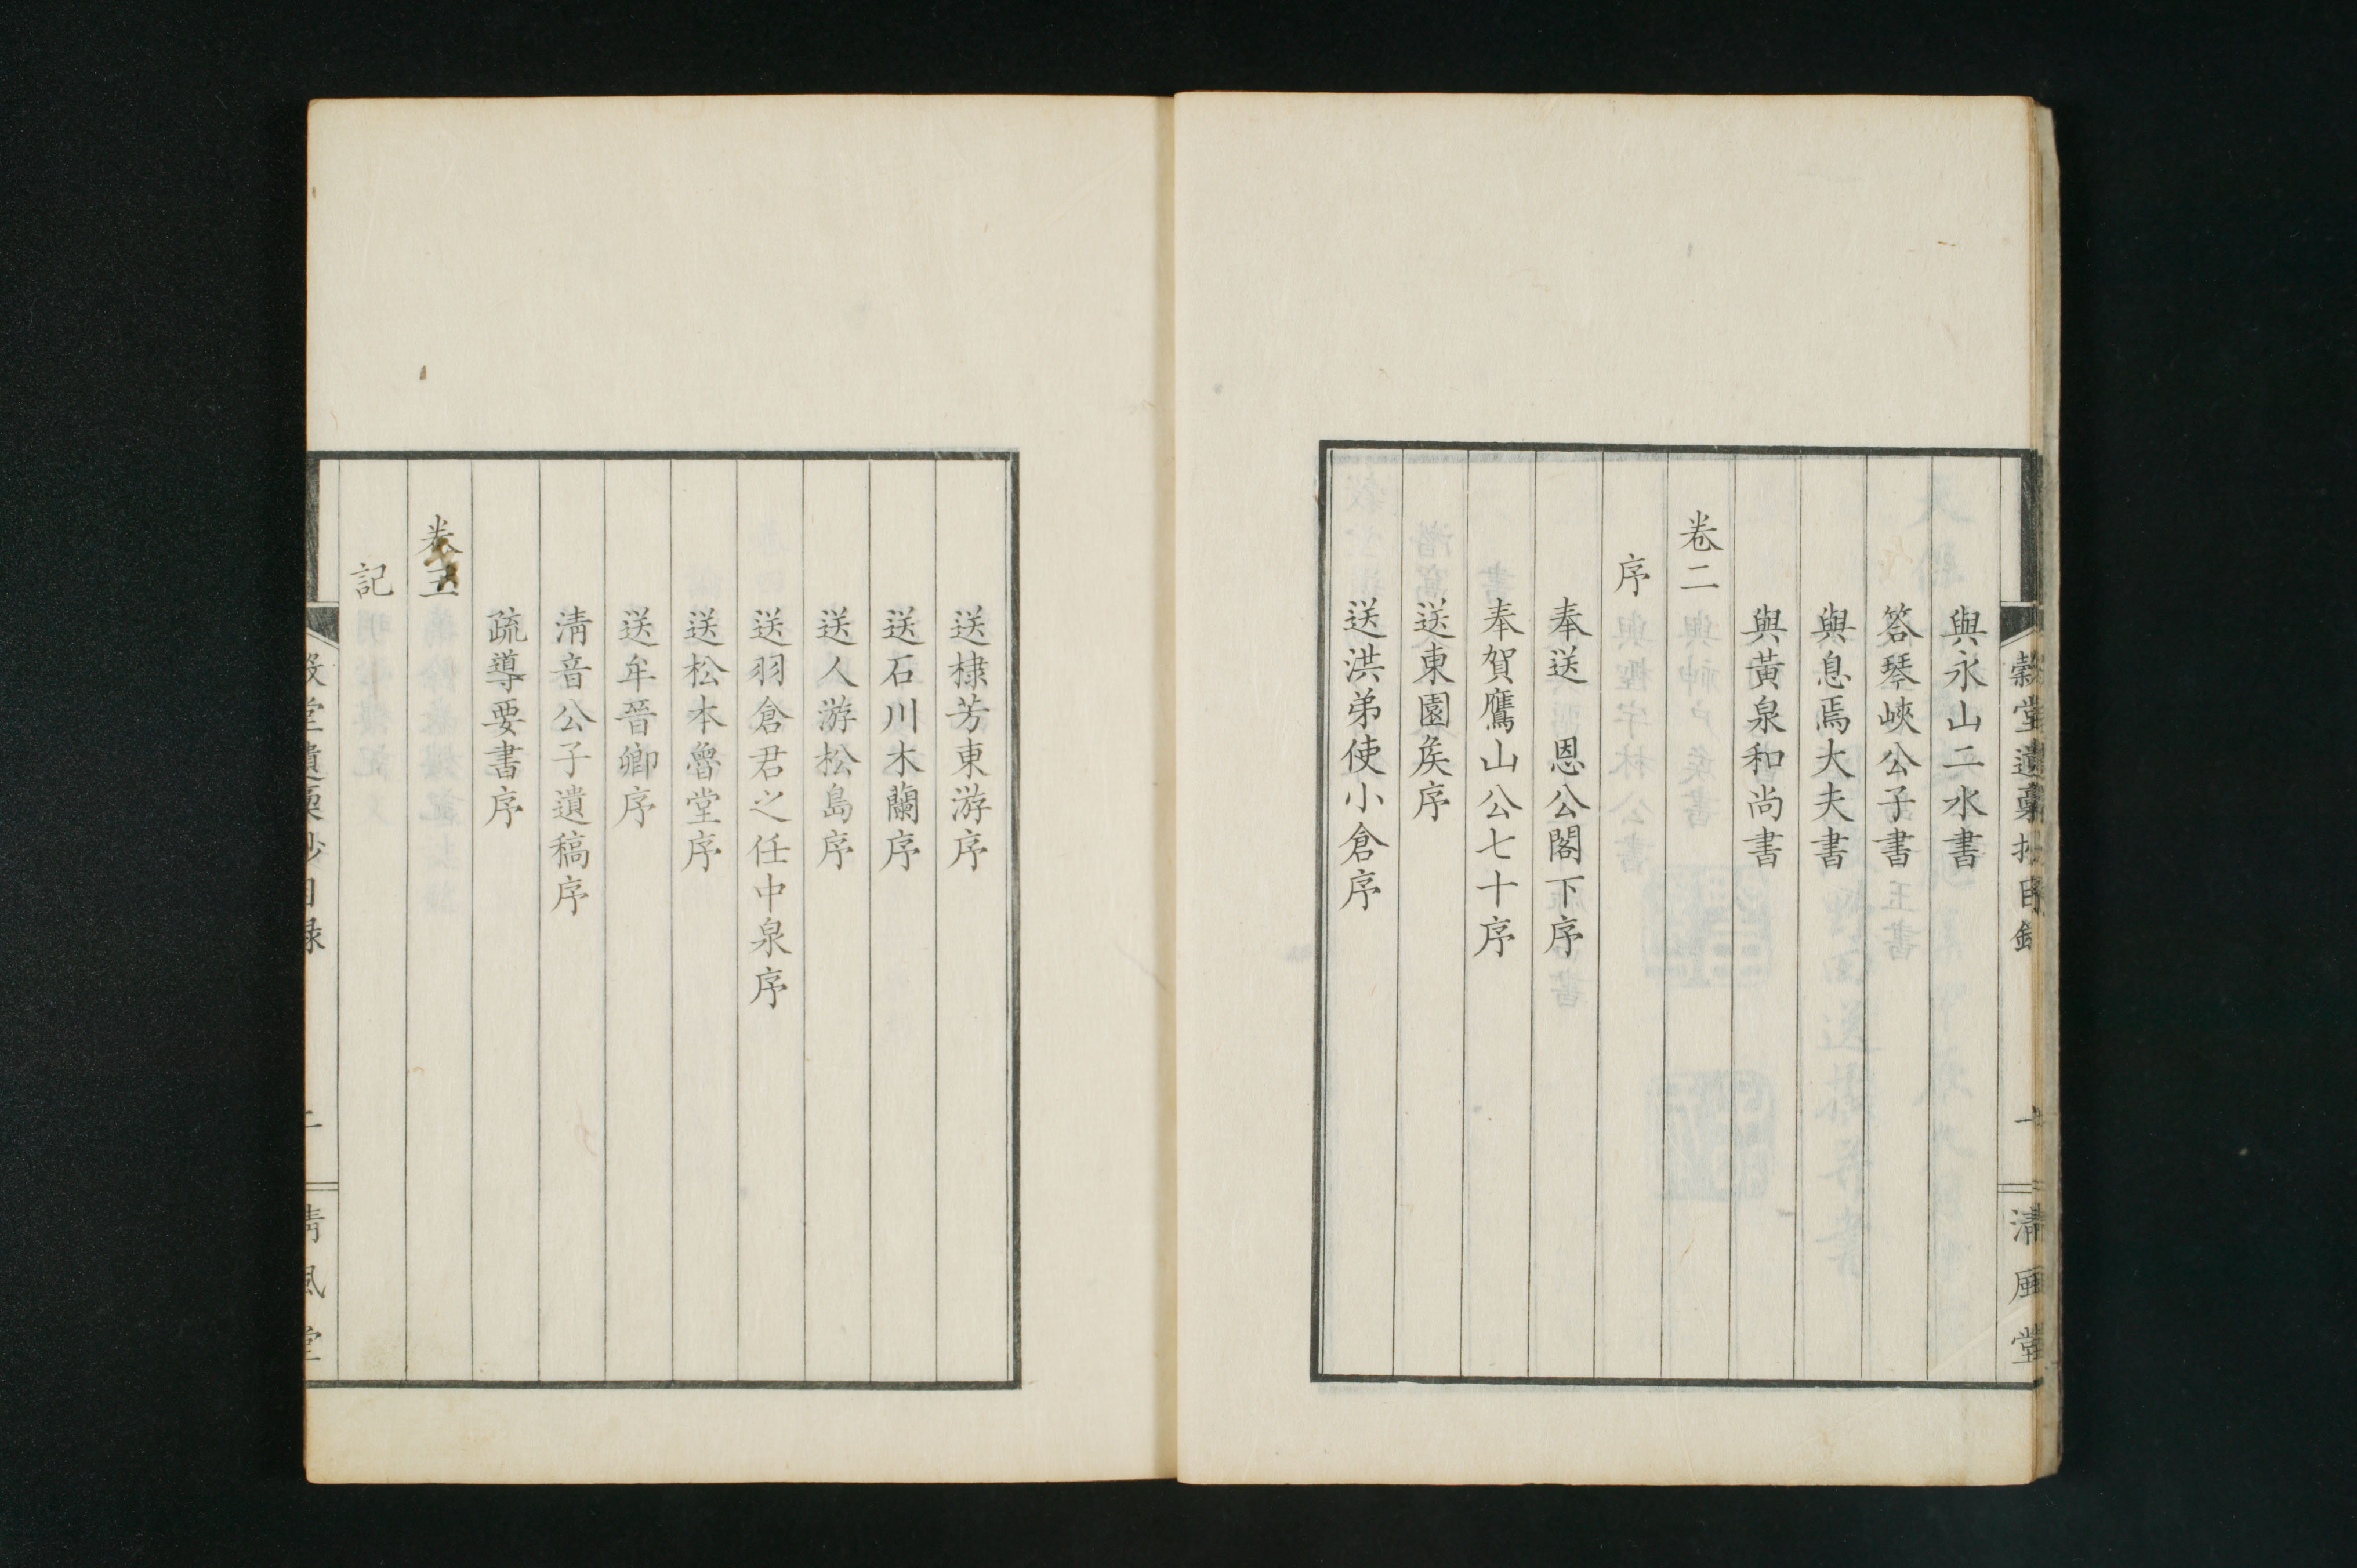 穀堂遺稾抄目錄 一 淸風堂
與永山二水書
答琴峽公子書
與息焉大夫書
與黃泉和尚書
卷二
序
奉送 恩公閣下序
奉賀鷹山公七十序
送東園矦序
送洪弟使小倉序
送棣芳東游序
送石川木蘭序
送人游松島序
送羽倉君之任中泉序
送松本魯堂序
送牟晉卿序
淸音公子遺稿序
疏導要書序
卷三
記